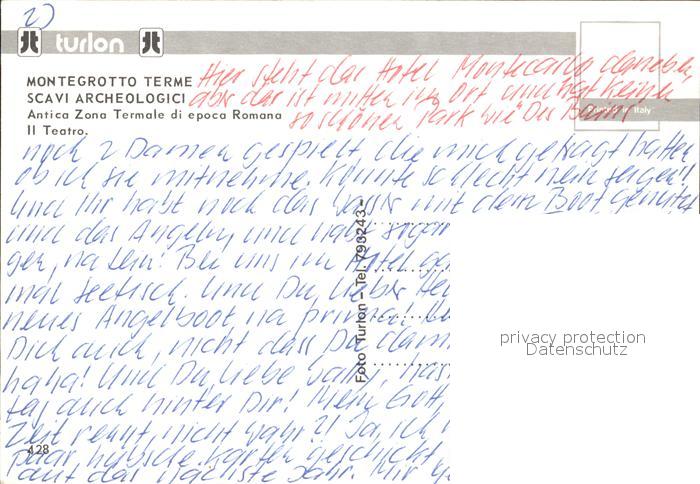 2)
turlon
MONTEGROTTO TERME
SCAVI ARCHEOLOGICI
Antica Zona Termale di epoca Romana
Il Teatro.
Hier steht das Hotel Montecarlo daneben,
aber das ist mitten im Ort und hat keinen
so schönen Park wie "Des Bains"
Italy
noch 2 Damen gespielt die mich gefragt hatten
ob ich sie mitnehme. Konnte schlecht nein sagen!!
Und Ihr habt noch das Wasser mit dem Boot genützt
und das Angeln, und habt sogar
gen, na sein! Bei uns im Hotel ga
mal Seefisch. Und Du, lieber He
neues Angelboot, ja prima!
Dich auch, nicht dass Du dann
haha! Und Du, liebe Vally, has
tag auch hinter Dir! Mein Gott,
Zeit rennt, nicht wahr?! Ja, ich
paar hübsche Karten geschickt
auf das nächste Jahr. Mir
Foto Turlon – Tel. 793243 –
428
privacy protection
Datenschutz